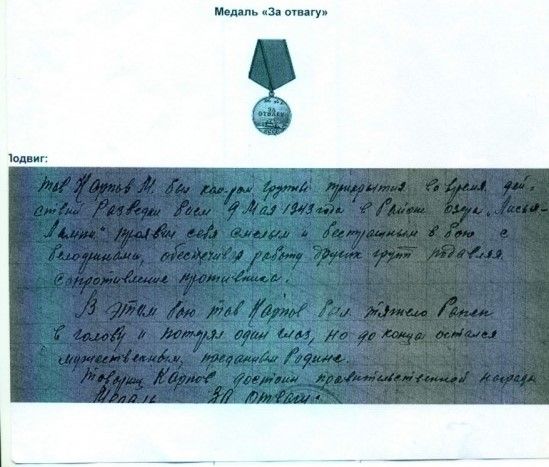 Медаль «За отвагу»
ЗА
ОТВАГУ
Подвиг:
тов Карпов М. был ком-ром группы прикрытия во время дей-
ствий Разведки боем 9 Мая 1943 года в Районе озера
проявил себя смелым и бесстрашным в бою с
обеспечивал работу других групп подавляя
сопротивление противника.
В этом бою тов Карпов был тяжело Ранен
в голову и потерял один глаз, но до конца остался
мужественным, преданным Родине.
Товарищ Карпов достоин правительственной награды
Медаль За отвагу.